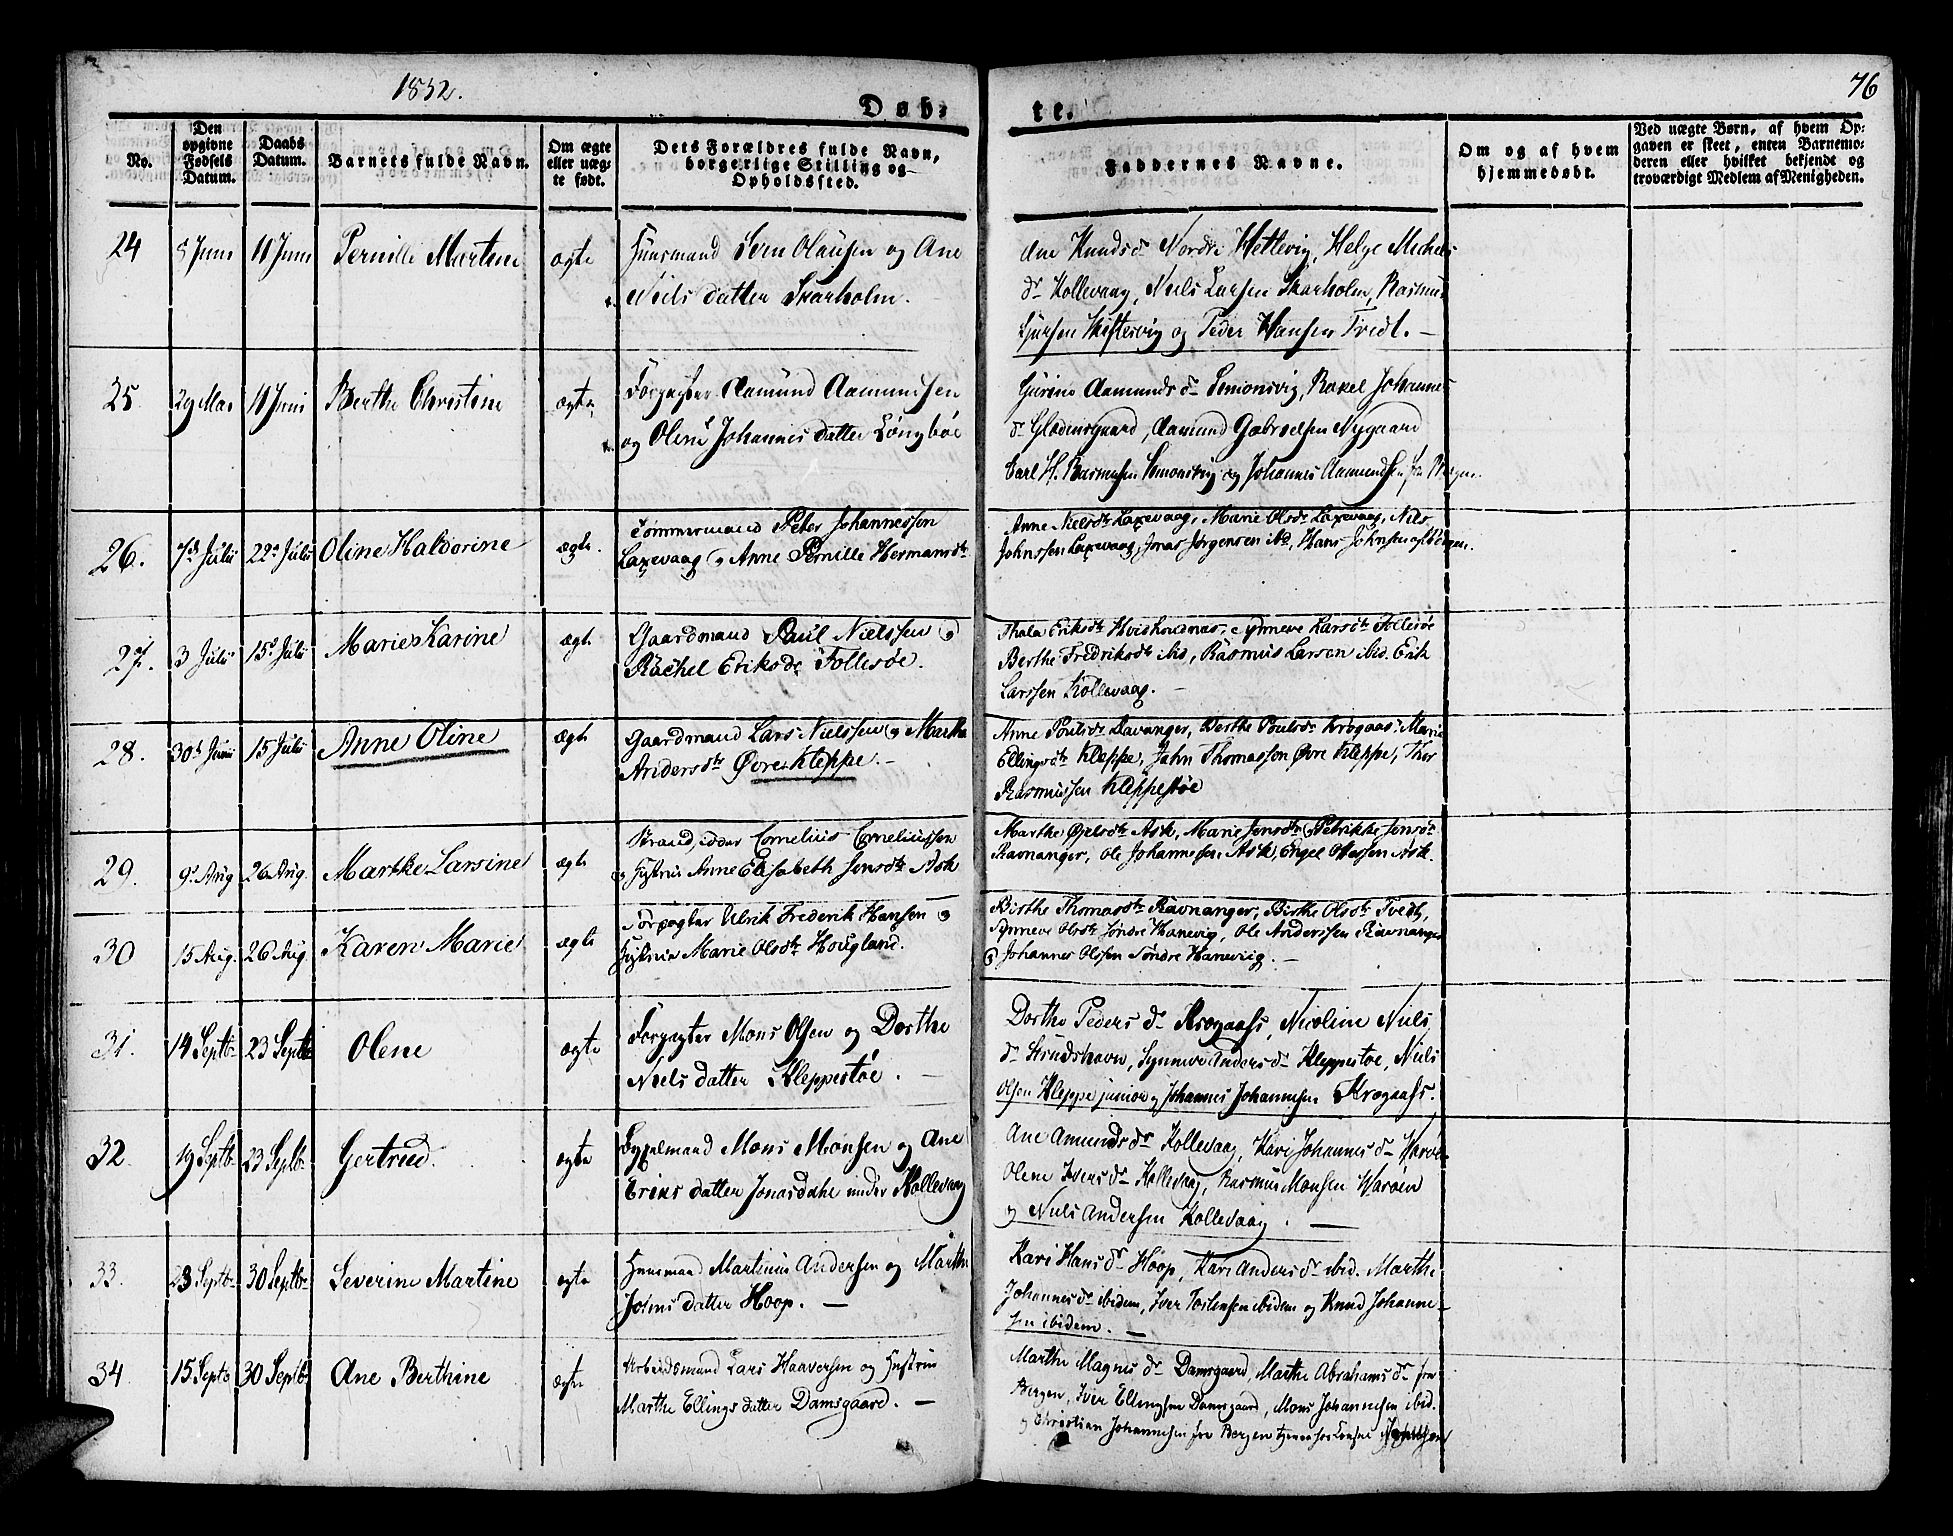 1832.
76
Døb- te.
No.
Den opgivne Fødsels Datum.
Daabs Datum.
Barnets fulde Navn.
Om ægte eller uægte født.
Dets Forældres fulde Navn, borgerlige Stilling og Opholdssted.
Faddernes Navne.
Om og af hvem hjemmedøbt.
Ved uægte Børn, af hvem Opgaven er skeet, enten Barnemoderen eller hvilket bekjendt og troværdigt Medlem af Menigheden.
24 Juni 11 Juni Pernille Martine ægte Huusmand Olausen og Ane
Niels datter Skarholm.
Ane Knudsdr Nordre Hettevig, Helge Michels
dr Kollevaag, Niels Larsen Skarholm, Rasmus
og Peder Hansen Tvedt.
25. 29 Mai 11 Juni Berthe Christine ægte Forpagter Aamund Aamundsen
og Olene Johannes datter Løngbøe
Aamunds dr Simonsvig, Rakel Johannes
dr Aamund Gabrielsen Nygaard
Carl H. Rasmusen Simonsvig og Johannes Aamundsen fra Bergen.
26. 7d Julii 22d Julii Oline Haldorine ægte. Tømmermand Peter Johannessen
Laxevaag og Anne Pernille Hermansdtr
Anne Nielsdtr Laxevaag, Marie Olsdr Laxevaag, Nils
Johnssen Laxevaag, Jonas Jørgensen ibd, Hans Johnsen af Bergen.
27. 3 Julii 15d Julii Marie Karine ægte Gaardmand Paul Nielssen og
Rachel Eriksdr Follesøe.
Eriksdtr Synneve Larsdtr Follesøe
Berthe Fredriksdtr ibid, Rasmus Larsen ibid. Erik
Larssen Kollevaag.
28. 30t Junii 15 Julii Anne Oline ægte Gaardmand Lars Nielssen og Martha
Andersdtr Øvre Kleppe.
Anne Poulsdr Davanger, Berthe Poulsdr Krogaas, Marie
Ellingsdtr Kleppe, John Thomassen Øvre Kleppe, Thor
Rasmussen Kleppestøe
29. 9d Aug 26 Aug. Marthe Larsine ægte Cornelius Corneliussen
og Hystrue Anne Elisabeth Jensdtr Ask
Marthe Ask, Marie Jensdtr og Petrikke Jensdtr
Ravnanger, Ole Johannessen Ask, Engel Ask.
30 15 Aug. 26 Aug. Karen Marie ægte Forpagter Ulrik Frederik Hansen og
Hystrue Marie Olsdtr Hougland.
Birthe Thomasdtr Ravnanger, Birthe Olsdtr Tvedt,
Synneve Olsdtr Søndre Hanevig, Ole Anderssen Ravnanger
og Johannes Olssen Søndre Haneviig.
31. 14 Septbr 23 Septbr Olene ægte Forpagter Mons Olsen og Dorthe
Niels datter Kleppestøe.
Dorthe Peders dr Krogaass, Nicoline Niels
dr Strudshavn, Synneve Anders dr Kleppestøe, Niels
Olsen Kleppe junior og Johannes Johannesen Krogaass.
32. 19 Septbr 23 Septbr Gertrud. ægte Mons Monsen og Ane
Erics datter Jonasdahl under Kollevaag
Ane Amunds dr Kollevaag, Kari Johannes dr
Olene Ivers dr Kollevaag, Rasmus Monsen Warøen
og Niels Andersen Kollevaag.
33. 23 Septbr 30 Septbr Severine Martine ægte Huusmand Martinus Andersen og Marthe
Johns datter Hoop.
Kari Hans dr Hoop, Kari Anders dr ibid. Marthe
Johannes dr ibidem, Iver Torstensen ibidem og Knud Johanne-
sen ibidem.
34 15 Septbr 30 Septbr Ane Berthine ægte Arbeidsmand Lars Haaversen og Hustrue
Marthe Ellings datter Damsgaard.
Marthe Magnes dr Damsgaard, Marthe Abrahams dr fra
Bergen, Iver Ellingsen Damsgaard, Mons Johannesen ibid.
og Christian Johannesen fra Bergen